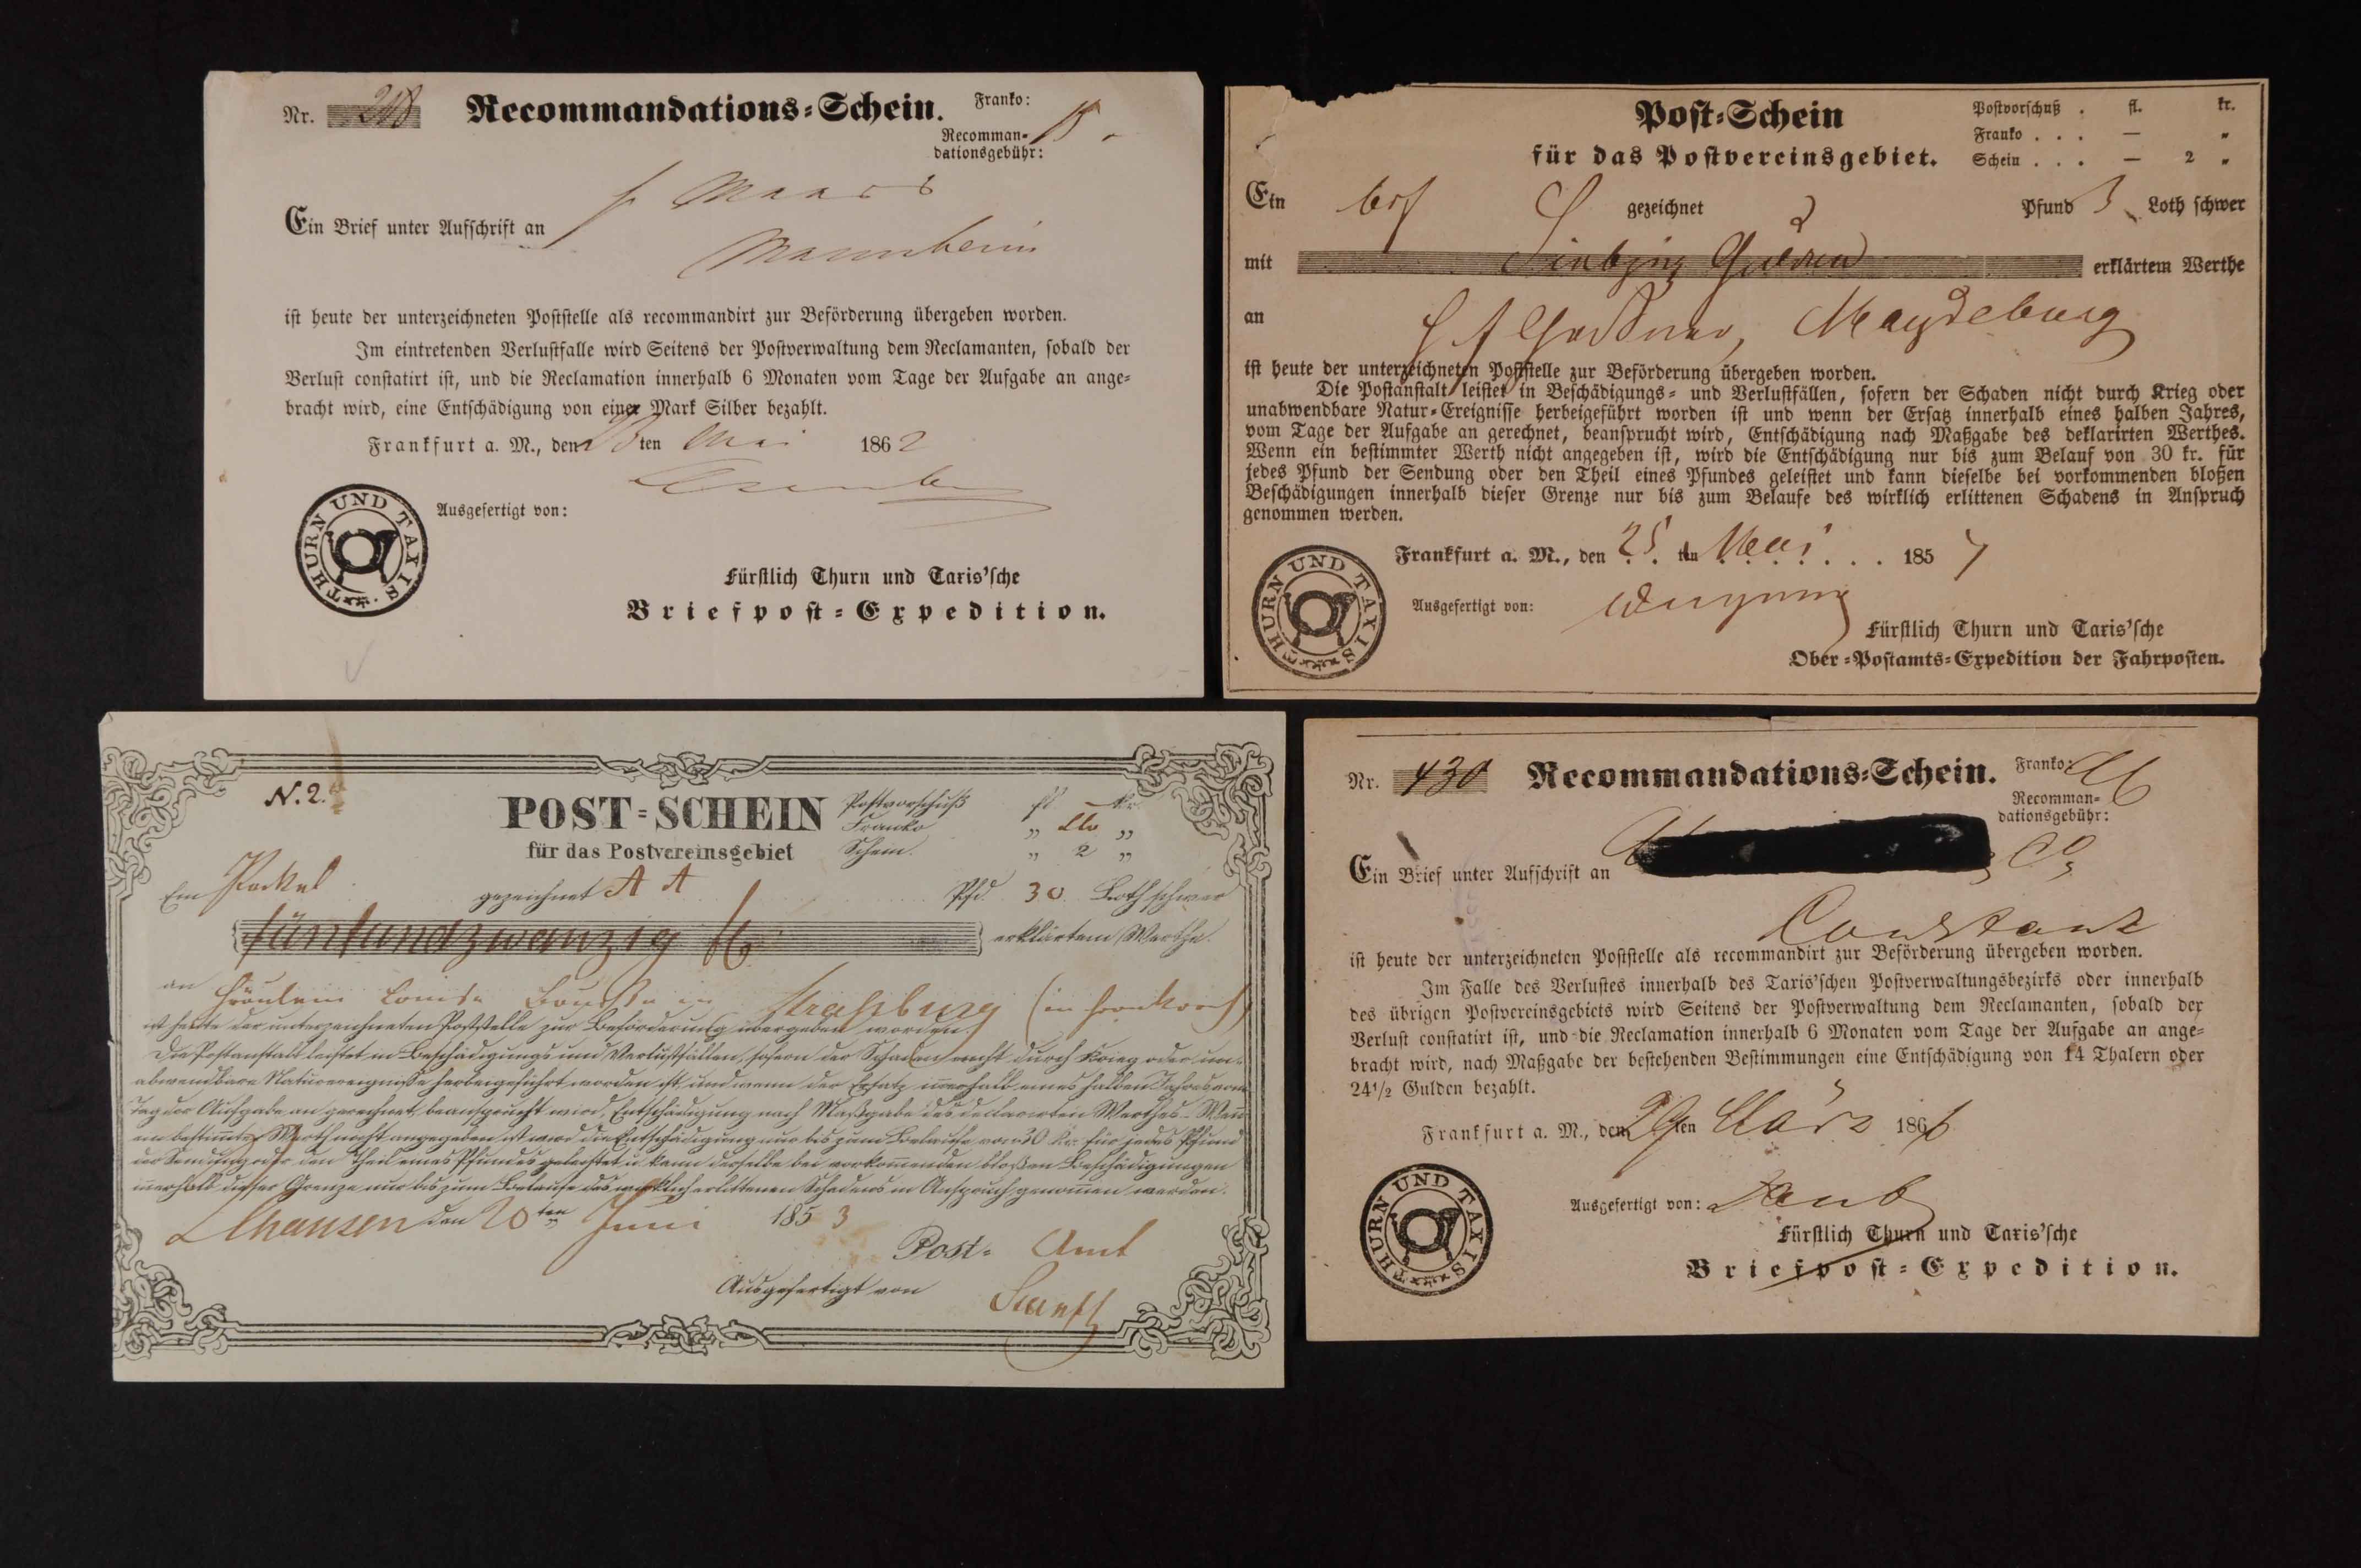 Nr. 208 Recommandations-Schein. Franko:
Recomman-
dationsgebühr:
Ein Brief unter Aufschrift an
Mannheim
ist heute der unterzeichneten Poststelle als recommandirt zur Beförderung übergeben worden.
Im eintretenden Verlustfalle wird Seitens der Postverwaltung dem Reclamanten, sobald der
Verlust constatirt ist, und die Reclamation innerhalb 6 Monaten vom Tage der Aufgabe an ange-
bracht wird, eine Entschädigung von einer Mark Silber bezahlt.
Frankfurt a. M., den ten Mai 1862
Ausgefertigt von:
THURN UND TAXIS
Fürstlich Thurn und Taxis'sche
Briefpost-Expedition.
Post-Schein
für das Postvereinsgebiet.
Postvorschuß . fl. kr.
Franko . . . — "
Schein . . . — 2 "
Ein gezeichnet Pfund 3 Loth schwer
mit Gulden erklärtem Werthe
an Magdeburg
ist heute der unterzeichneten Poststelle zur Beförderung übergeben worden.
Die Postanstalt leistet in Beschädigungs- und Verlustfällen, sofern der Schaden nicht durch Krieg oder
unabwendbare Natur-Ereignisse herbeigeführt worden ist und wenn der Ersatz innerhalb eines halben Jahres,
vom Tage der Aufgabe an gerechnet, beansprucht wird, Entschädigung nach Maßgabe des deklarirten Werthes.
Wenn ein bestimmter Werth nicht angegeben ist, wird die Entschädigung nur bis zum Belauf von 30 kr. für
jedes Pfund der Sendung oder den Theil eines Pfundes geleistet und kann dieselbe bei vorkommenden bloßen
Beschädigungen innerhalb dieser Grenze nur bis zum Belaufe des wirklich erlittenen Schadens in Anspruch
genommen werden.
Frankfurt a. M., den 25. ten Mai . . . 1857
Ausgefertigt von:
THURN UND TAXIS
Fürstlich Thurn und Taxis'sche
Ober-Postamts-Expedition der Fahrposten.
N. 2.
POST-SCHEIN
für das Postvereinsgebiet
Postvorschuß fl — Kr.
Franko " "
Schein. " 2 "
Ein Packet gezeichnet A A Pfd. 30 Loth schwer
fünfundzwanzig erklärtem Werthe.
an Fräulein Louise in Strassburg (in Frankreich)
ist heute der unterzeichneten Poststelle zur Beförderung übergeben worden.
Die Postanstalt leistet in Beschädigungs und Verlustfällen, sofern der Schaden nicht durch Krieg oder un-
abwendbare Naturereignisse herbeigeführt worden ist und wenn der Ersatz innerhalb eines halben Jahres vom
Tag der Aufgabe an gerechnet, beansprucht wird, Entschädigung nach Maßgabe des declarirten Werthes. Wenn
ein bestimmter Werth nicht angegeben ist wird die Entschädigung nur bis zum Belaufe von 30 Kr. für jedes Pfund
der Sendung oder den Theil eines Pfundes geleistet u. kann derselbe bei vorkommenden bloßen Beschädigungen
innerhalb dieser Grenze nur bis zum Belaufe des wirklich erlittenen Schadens in Anspruch genommen werden.
den 20 ten Juni 1853
Post- Amt
Ausgefertigt von
Nr. 430 Recommandations-Schein. Franko:
Recomman-
dationsgebühr:
Ein Brief unter Aufschrift an
Constanz
ist heute der unterzeichneten Poststelle als recommandirt zur Beförderung übergeben worden.
Im Falle des Verlustes innerhalb des Taxis'schen Postverwaltungsbezirks oder innerhalb
des übrigen Postvereinsgebiets wird Seitens der Postverwaltung dem Reclamanten, sobald der
Verlust constatirt ist, und die Reclamation innerhalb 6 Monaten vom Tage der Aufgabe an ange-
bracht wird, nach Maßgabe der bestehenden Bestimmungen eine Entschädigung von 14 Thalern oder
24½ Gulden bezahlt.
Frankfurt a. M., den 29ten März 186
Ausgefertigt von:
THURN UND TAXIS
Fürstlich Thurn und Taxis'sche
Briefpost-Expedition.